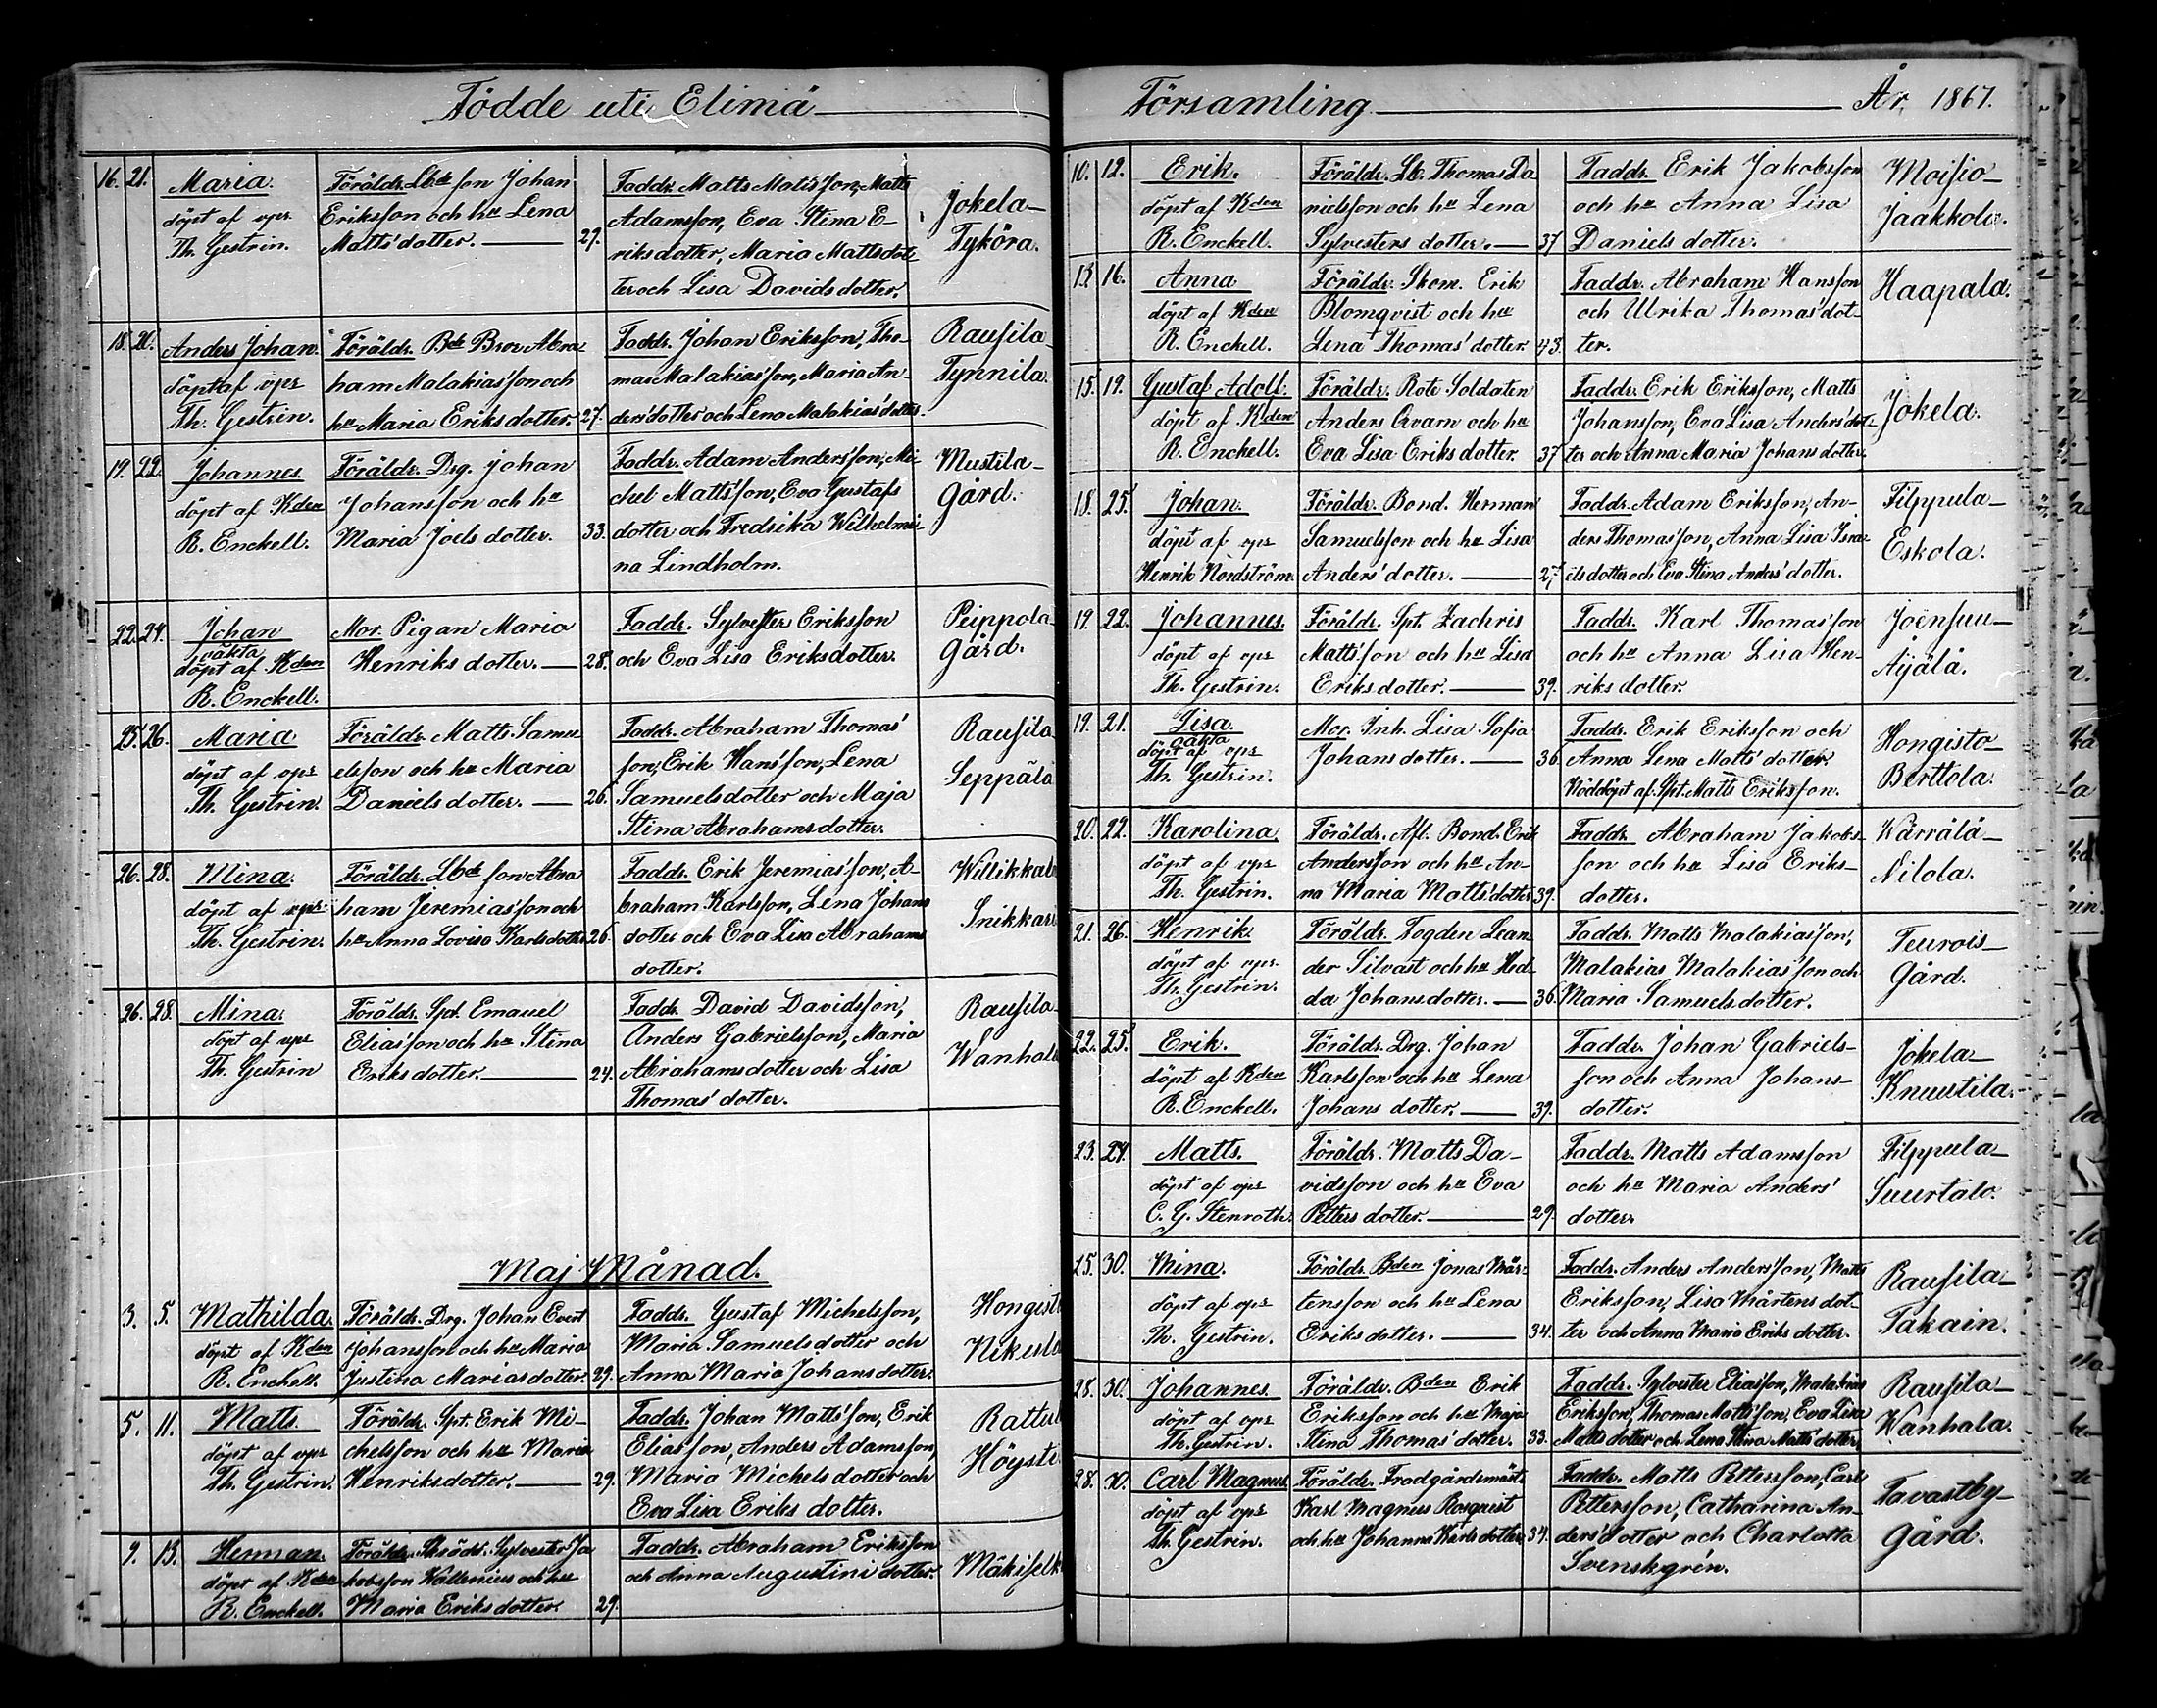 Födde uti Elimä
16. 21. Maria.
döpt af vpr
Th. Gestrin.
Föräldr. Lbde son Johan
Eriksson och hu Lena
Matts'dotter. 27.
Faddr. Matts Mats'son, Matts
Adamsson, Eva Stina E-
riksdotter, Maria Mattsdot-
ter och Lisa Davidsdotter.
Jokela-
Tyköra.
18. 20. Anders Johan.
döpt af vpr
Th. Gestrin.
Föräldr. Bde Bror Abra-
ham Malakias'son och
hu Maria Eriksdotter. 27.
Faddr. Johan Eriksson, Tho-
mas Malakias'son, Maria An-
ders'dotter och Lena Malakias'dotter.
Rausila-
Tynnila.
19. 22. Johannes.
döpt af Kden
R. Enckell.
Föräldr. Drg. Johan
Johansson och hu
Maria Joels dotter. 33.
Faddr. Adam Anders'son, Mi-
chel Matts'son, Eva Gustafs
dotter och Fredrika Wilhelmi-
na Lindholm.
Mustila-
Gård.
22. 24. Johan
oäkta
döpt af Kden
R. Enckell.
Mor. Pigan Maria
Henriks dotter. 28.
Faddr. Sylvester Eriksson
och Eva Lisa Eriksdotter.
Peippola-
Gård.
25. 26. Maria
döpt af vpr
Th. Gestrin.
Föräldr. Matts Samu-
elsson och hu Maria
Daniels dotter. 26.
Faddr. Abraham Thomas'
son, Erik Hans'son, Lena
Samuelsdotter och Maja
Stina Abrahamsdotter.
Rausila-
Seppälä
26. 28. Mina.
döpt af vpr
Th. Gestrin.
Föräldr. Lbde son Abra
ham Jeremias'son och
hu Anna Lovisa Karlsdotter. 26.
Faddr. Erik Jeremias'son, A-
braham Karlsson, Lena Johans
dotter och Eva Lisa Abrahams
dotter.
Willikkala
Snikkari
26. 28. Mina.
döpt af vpr
Th. Gestrin
Föräldr. Spt. Emanuel
Elias'son och hu Stina
Eriks dotter. 24.
Faddr. David Davidsson,
Anders Gabrielsson, Maria
Abrahamsdotter och Lisa
Thomas' dotter.
Rausila-
Wanhala
Maj Månad.
3. 5. Mathilda.
döpt af Kden
R. Enckell.
Föräldr. Drg. Johan Evert
Johansson och hu Maria
Justina Mariasdotter. 29.
Faddr. Gustaf Michelsson,
Maria Samuelsdotter och
Anna Maria Johansdotter.
Hongisto
Nikula
5. 11. Matts.
döpt af vpr
Th. Gestrin.
Föräldr. Spt. Erik Mi-
chelsson och hu Maria
Henriksdotter. 29.
Faddr. Johan Matts'son, Erik
Elias'son, Anders Adamsson,
Maria Michels dotter och
Eva Lisa Eriks dotter.
Rattul
Höyste
9. 13. Herman.
döpt af Kden
R. Enckell.
Föräldr. Skrädd. Sylvester Ja
kobsson Wallenius och hu
Maria Eriks dotter. 29.
Faddr. Abraham Eriksson
och Anna Augustini dotter.
Mäkiselk
Församling År 1867.
10. 12. Erik.
döpt af Kden
R. Enckell.
Föräldr. Lb. Thomas Da-
nielsson och hu Lena
Sylvesters dotter. 37
Faddr. Erik Jakobsson
och hu Anna Lisa
Daniels dotter.
Moisio-
Jaakkola.
13. 16. Anna
döpt af Kden
R. Enckell.
Föräldr. Skom. Erik
Blomqvist och hu
Lena Thomas' dotter. 43.
Faddr. Abraham Hansson
och Ulrika Thomas'dot-
ter.
Haapala.
15. 19. Gustaf Adolf.
döpt af Kden
R. Enckell.
Föräldr. Rote Soldaten
Anders Qvarn och hu
Eva Lisa Eriks dotter. 37
Faddr. Erik Eriksson, Matts
Johansson, Eva Lisa Anders'dot-
ter och Anna Maria Johans dotter.
Jokela.
18. 25. Johan.
döpt af vpr
Henrik Nordström.
Föräldr. Bond. Herman
Samuelsson och hu Lisa
Anders' dotter. 27.
Faddr. Adam Eriksson, An-
ders Thomas'son, Anna Lisa Isra-
elsdotter och Eva Stina Anders' dotter.
Filppula-
Eskola.
19. 22. Johannes.
döpt af vpr
Th. Gestrin.
Föräldr. Spt. Zachris
Matts'son och hu Lisa
Eriks dotter. 39.
Faddr. Karl Thomas'son
och hu Anna Lisa Hen-
riks dotter.
Joensuu-
Äijälä.
19. 21. Lisa.
oäkta
döpt af vpr
Th. Gestrin.
Mor. Inh. Lisa Sofia
Johans dotter. 36.
Faddr. Erik Eriksson och
Anna Lena Matts' dotter.
Nöddöpt af Spt. Matts Eriksson.
Hongisto-
Berttola.
20. 22. Karolina
döpt af vpr
Th. Gestrin.
Föräldr. Afl. Bond. Erik
Andersson och hu An-
na Maria Matts'dotter 39.
Faddr. Abraham Jakobs-
son och hu Lisa Eriks-
dotter.
Wärrälä-
Nilola.
21. 26. Henrik
döpt af vpr
Th. Gestrin.
Föräldr. Fogden Lean-
der Silvast och hu Hed-
da Johansdotter. 36.
Faddr. Matts Malakias'son,
Malakias Malakias'son och
Maria Samuelsdotter.
Teurois-
Gård.
22. 25. Erik.
döpt af Kden
R. Enckell.
Föräldr. Drg. Johan
Karlsson och hu Lena
Johans dotter. 39.
Faddr. Johan Gabriels-
son och Anna Johans-
dotter.
Jokela-
Knuutila.
23. 24. Matts.
döpt af vpr
C. G. Stenroth.
Föräldr. Matts Da-
vidsson och hu Eva
Petters dotter. 29.
Faddr. Matts Adamsson
och hu Maria Anders'
dotter.
Filppula-
Suurtalo.
25. 30. Mina.
döpt af vpr
Th. Gestrin.
Föräldr. Bden Jonas Mår-
tensson och hu Lena
Eriks dotter. 34.
Faddr. Anders Anders'son, Matts
Eriksson, Lisa Mårtens dot-
ter och Anna Maria Eriks dotter.
Rausila-
Takain.
28. 30. Johannes.
döpt af vpr
Th. Gestrin.
Föräldr. Bden Erik
Eriksson och hu Maja
Stina Thomas' dotter. 33.
Faddr. Sylvester Eliasson, Malakias
Eriksson, Thomas Matts'son, Eva Lisa
Matts dotter och Lena Stina Matts' dotter
Rausila-
Wanhala.
28. 30. Carl Magnus.
döpt af vpr
Th. Gestrin.
Föräldr. Trädgårdsmäst.
Karl Magnus Rosqvist
och hu Johanna Karls dotter 34.
Faddr. Matts Pettersson, Carl
Pettersson, Catharina An-
ders'dotter och Charlotta
Svenskgrén.
Tavastby-
Gård.